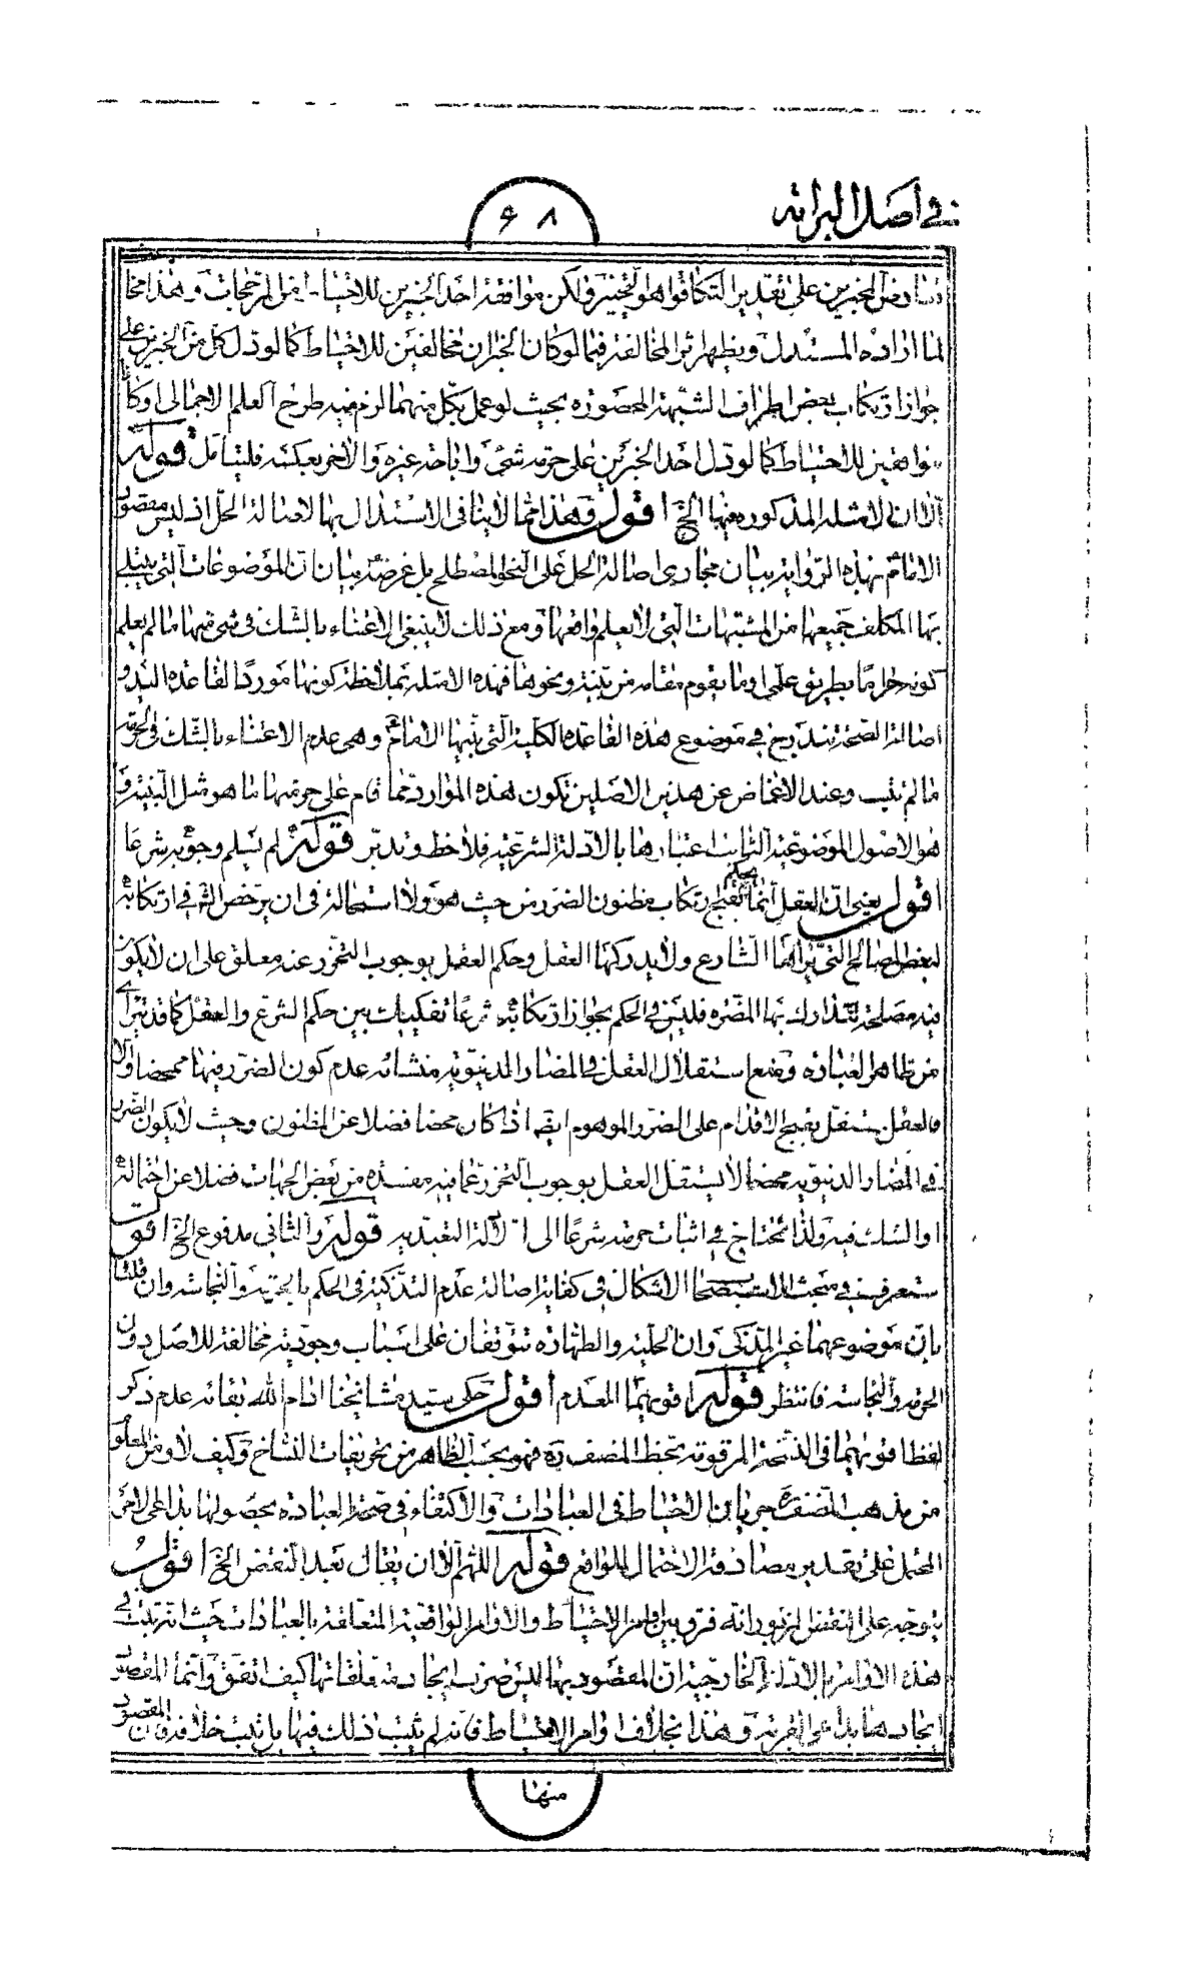 في أصل البرائه
۶۸
تعارض الخبرين على تقدير التكافؤ هو التخيير ولكن موافقة احد الخبرين للاحتياط من المرجحات وهذا مخالف
لما اراده المستدل ويظهر اثر المخالفة فيما لو كان الخبران مخالفين للاحتياط كما لو دل كل من الخبرين على
جواز ارتكاب بعض اطراف الشبهة المحصوره بحيث لو عمل بكل منهما لزم منه طرح العلم الاجمالى او كانا
موافقين للاحتياط كما لو دل احد الخبرين على حرمة شئ واباحة غيره والاخر بعكسه فليتامل قوله
الا ان الامثلة المذكوره فيها الخ اقول وهذا مما لا ينافى الاستدلال بها لاصالة الحل اذ ليس مقصود
الامام بهذه الرواية بيان مجارى اصالة الحل على النحو المصطلح بل غرضه بيان ان الموضوعات التى يبتلى
بها المكلف جميعها من المشتبهات التى لا يعلم واقعها ومع ذلك لا ينبغى الاعتناء بالشك فى شئ منها ما لم يعلم
كونه حراما بطريق علمى او ما يقوم مقامه من بينة ونحوها فهذه الامثلة بملاحظة كونها موردا لقاعدة اليد و
اصالة الصحة تندرج في موضوع هذه القاعدة الكلية التى بينها الامام وهى عدم الاعتناء بالشك فى الحرمة
ما لم يثبت وعند الاغماض عن هذين الاصلين تكون هذه الموارد مما قام على حرمتها ما هو مثل البينة و
هو الاصول الموضوعية الثابت اعتبارها بالادلة الشرعية فلاحظ وتدبر قوله لم نسلم وجوبه شرعا
اقول يعنى ان العقل انما يحكم بقبح ارتكاب مظنون الضرر من حيث هو ولا استحالة فى ان يرخص الشارع في ارتكابه
لبعض المصالح التى يراها الشارع ولا يدركها العقل وحكم العقل بوجوب التحرز عنه معلق على ان لا يكون
فيه مصلحة يتدارك بها المضره فليس في الحكم بجواز ارتكابه شرعا تفكيك بين حكم الشرع والعقل كما قد يترائى
من ظاهر العباره ومنع استقلال العقل في المضار الدنيوية منشائه عدم كون الضرر فيها محضا والا
فالعقل يستقل بقبح الاقدام على الضرر الموهوم ايضا اذا كان محضا فضلا عن المظنون وحيث لا يكون الضرر
في المضار الدنيوية محضا لا يستقل العقل بوجوب التحرز عما فيه مفسده من بعض الجهات فضلا عن احتماله
او الشك فيه ولذا تحتاج في اثبات حرمته شرعا الى الادلة التعبديه قوله والثانى مدفوع الخ اقول
ستعرف في مبحث الاستصحاب الاشكال فى كفاية اصالة عدم التذكية فى الحكم بالحرمة والنجاسة وان قلنا
بان موضوعهما غير المذكى وان الحلية والطهاره تتوقفان على اسباب وجودية مخالفة للاصل دون
الحرمة والنجاسة فانتظر قوله اقويهما العدم اقول حكى سيد مشايخنا ادام الله بقائه عدم ذكر
لفظ اقويهما فى النسخة المرقومة بخط المصنف ره فهو بحسب الظاهر من تحريفات النساخ وكيف لا ومن المعلوم
من مذهب المصنف جريان الاحتياط فى العبادات والاكتفاء فى صحة العباده بحصولها بداعى الامر
المحتمل على تقدير مصادفة الاحتمال للواقع قوله اللهم الا ان يقال بعد النقض الخ اقول
يتوجه على النقض المزبور انه فرق بين اوامر الاحتياط والاوامر الواقعية المتعلقة بالعبادات حيث انه ثبت في
هذه الاوامر بالادلة الخارجية ان المقصود بها ليس صرف ايجاد متعلقاتها كيف اتفق وانما المقصود
ايجادها بداعى القربة وهذا بخلاف اوامر الاحتياط فانه لم يثبت ذلك فيها بل ثبت خلافه فان المقصود
منها